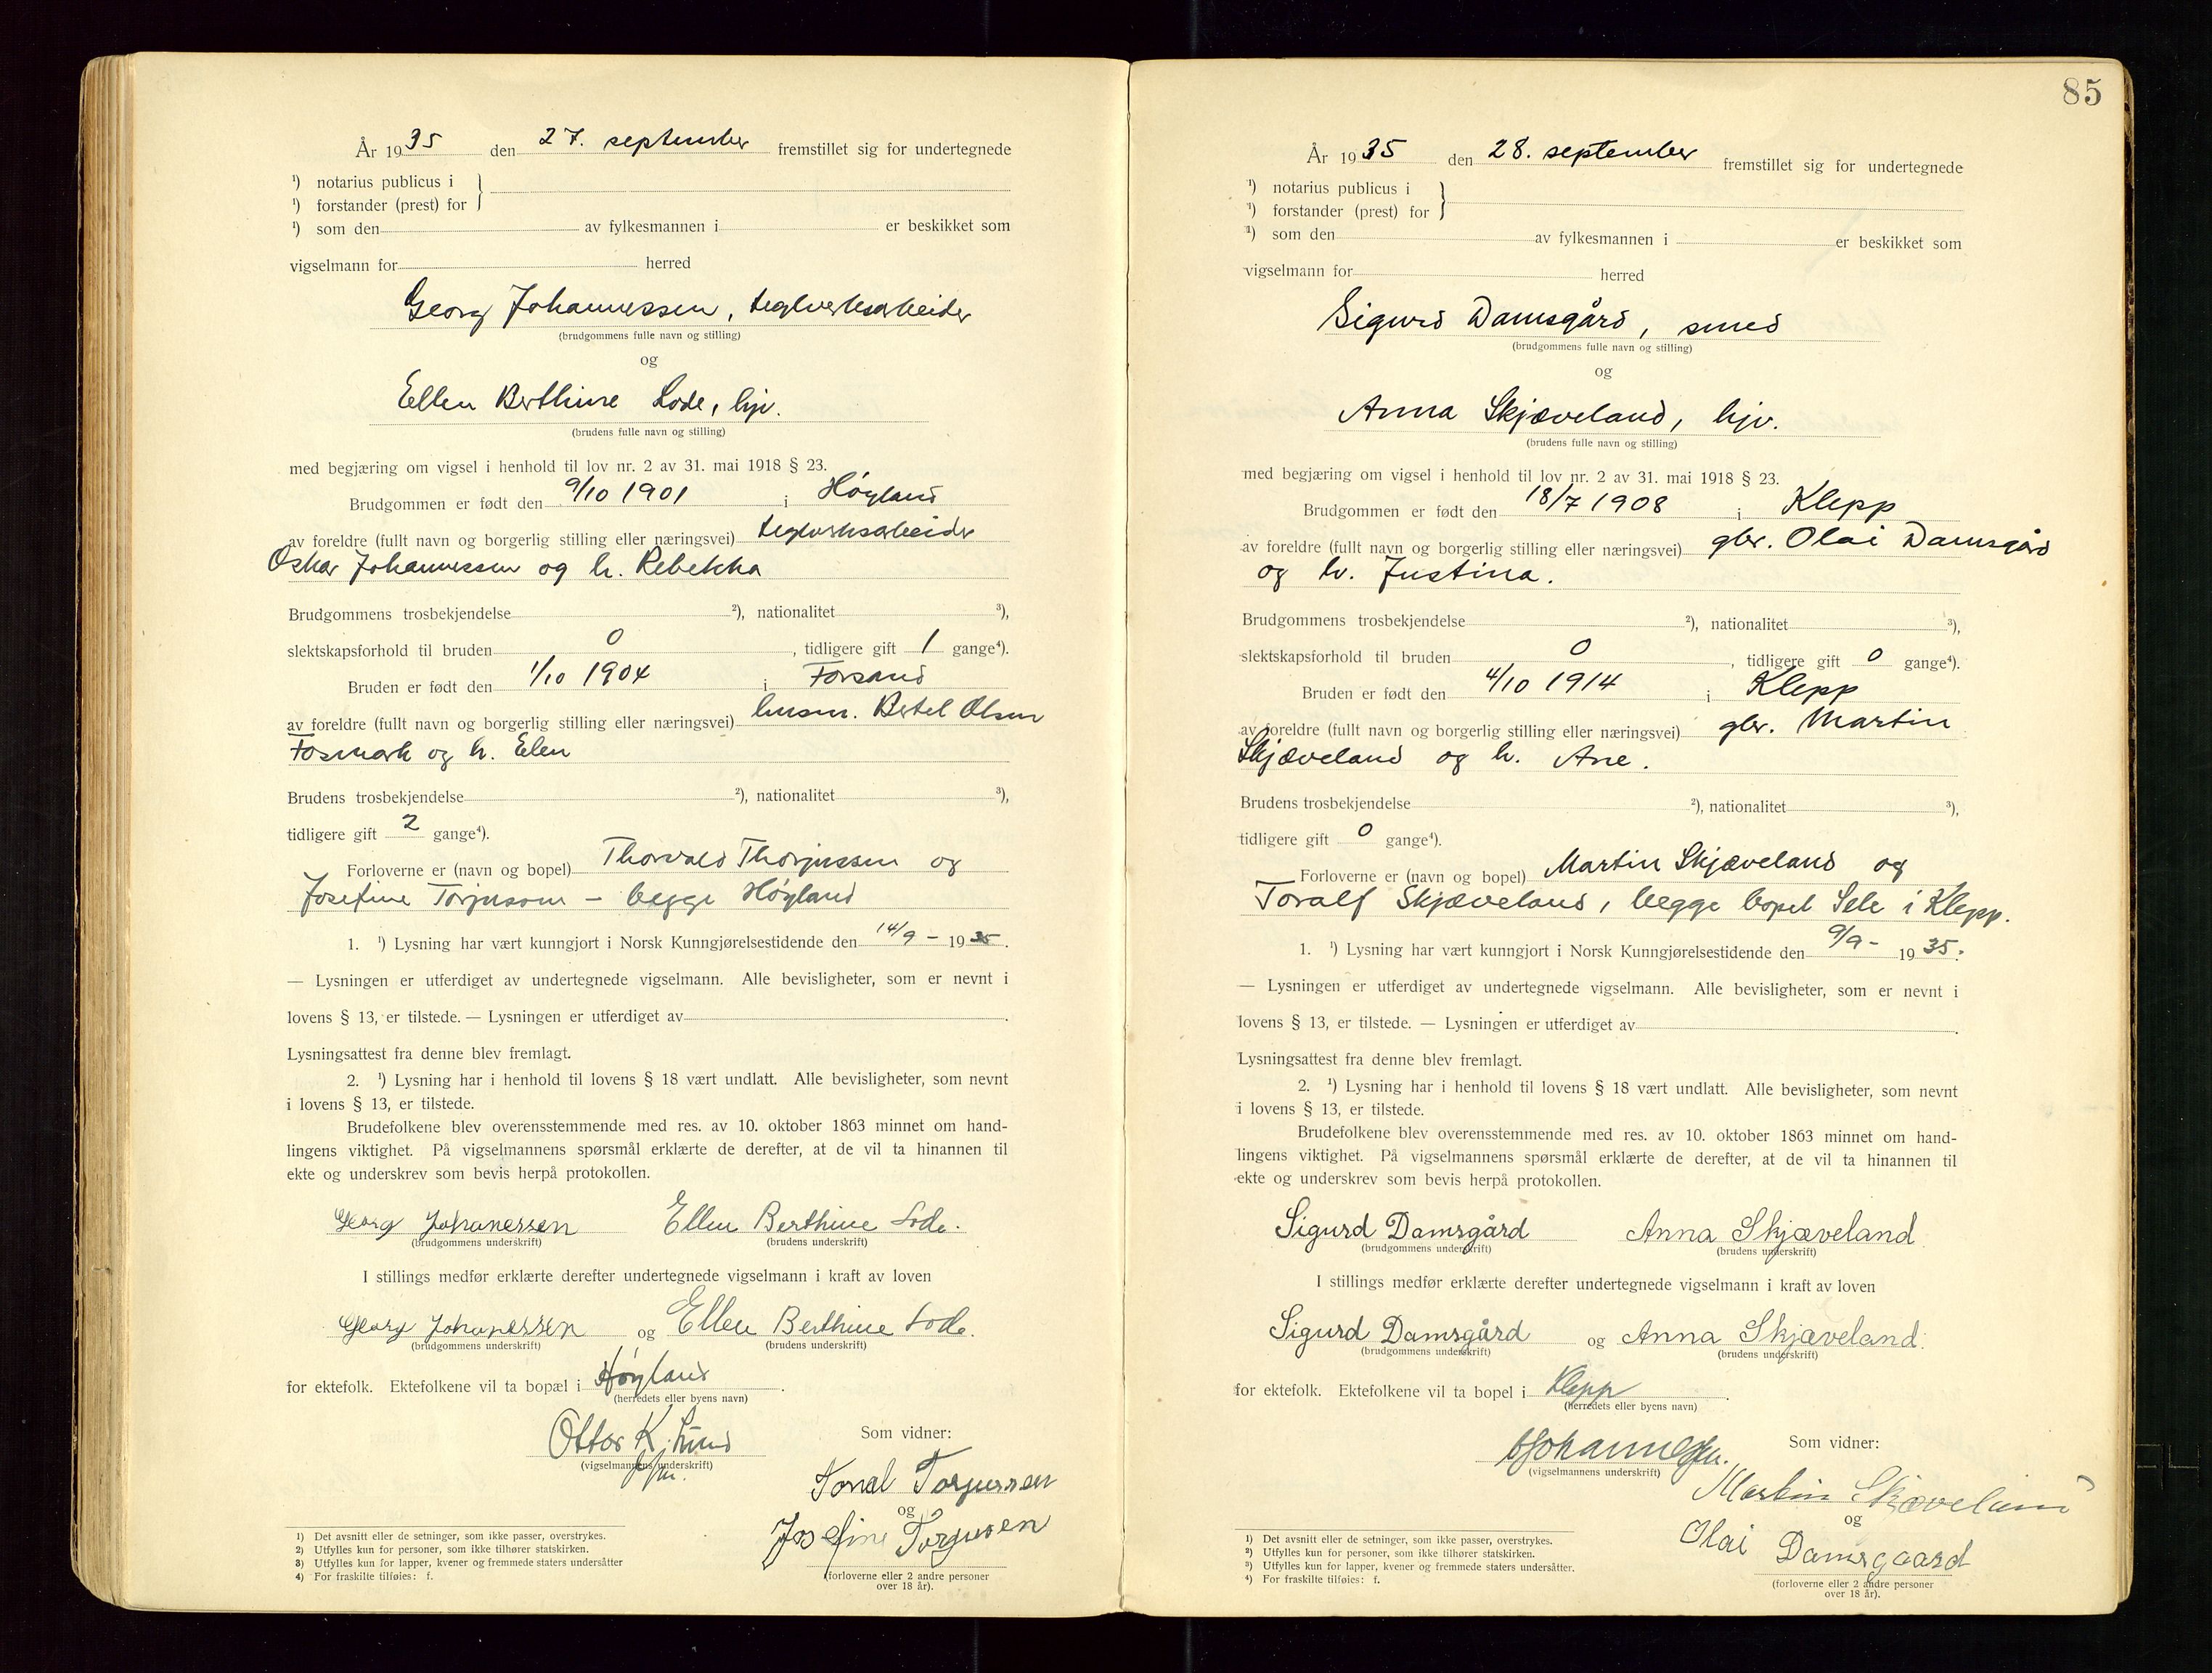 År 1935 den 27. september fremstillet sig for undertegnede
¹) notarius publicus i
¹) forstander (prest) for
¹) som den av fylkesmannen i er beskikket som
vigselmann for herred
Georg Johannessen, teglverksarbeider
(brudgommens fulle navn og stilling)
og
Ellen Berthine Lode, hjv.
(brudens fulle navn og stilling)
med begjæring om vigsel i henhold til lov nr. 2 av 31. mai 1918 § 23.
Brudgommen er født den 9/10 1901 i Høyland
av foreldre (fullt navn og borgerlig stilling eller næringsvei) teglverksarbeider
Oskar Johannessen og h. Rebekka
Brudgommens trosbekjendelse ²), nationalitet ³),
slektskapsforhold til bruden 0, tidligere gift 1 gange⁴).
Bruden er født den 1/10 1904 i Forsand
av foreldre (fullt navn og borgerlig stilling eller næringsvei) husm. Bertel Olsen
Fosmark og h. Elen
Brudens trosbekjendelse ²), nationalitet ³),
tidligere gift 2 gange⁴).
Forloverne er (navn og bopel) Thorvald Thorjussen og
Josefine Torjusson – begge Høyland
1. ¹) Lysning har vært kunngjort i Norsk Kunngjørelsestidende den 14/9 – 1935.
— Lysningen er utferdiget av undertegnede vigselmann. Alle bevisligheter, som er nevnt i
lovens § 13, er tilstede. — Lysningen er utferdiget av .
Lysningsattest fra denne blev fremlagt.
2. ¹) Lysning har i henhold til lovens § 18 vært undlatt. Alle bevisligheter, som nevnt
i lovens § 13, er tilstede.
Brudefolkene blev overensstemmende med res. av 10. oktober 1863 minnet om hand-
lingens viktighet. På vigselmannens spørsmål erklærte de derefter, at de vil ta hinannen til
ekte og underskrev som bevis herpå protokollen.
Georg Johanessen Ellen Berthine Lode.
(brudgommens underskrift) (brudens underskrift)
I stillings medfør erklærte derefter undertegnede vigselmann i kraft av loven
Georg Johanessen og Ellen Berthine Lode.
(brudgommens underskrift) (brudens underskrift)
for ektefolk. Ektefolkene vil ta bopæl i Høyland.
(herredets eller byens navn)
Ottar K. Lund
Som vidner:
(vigselmannens underskrift)
Torgussen
og
Josefine Torgusen
(forloverne eller 2 andre personer
over 18 år).
1) Det avsnitt eller de setninger, som ikke passer, overstrykes.
2) Utfylles kun for personer, som ikke tilhører statskirken.
3) Utfylles kun for lapper, kvener og fremmede staters undersåtter
4) For fraskilte tilføies: f.
85
År 1935 den 28. september fremstillet sig for undertegnede
¹) notarius publicus i
¹) forstander (prest) for
¹) som den av fylkesmannen i er beskikket som
vigselmann for herred
Sigurd Damsgård, smed
(brudgommens fulle navn og stilling)
og
Anna Skjæveland, hjv.
(brudens fulle navn og stilling)
med begjæring om vigsel i henhold til lov nr. 2 av 31. mai 1918 § 23.
Brudgommen er født den 18/7 1908 i Klepp
av foreldre (fullt navn og borgerlig stilling eller næringsvei) gbr. Olai Damsgård
og h. Justina.
Brudgommens trosbekjendelse ²), nationalitet ³),
slektskapsforhold til bruden 0, tidligere gift 0 gange⁴).
Bruden er født den 4/10 1914 i Klepp
av foreldre (fullt navn og borgerlig stilling eller næringsvei) gbr. Martin
Skjæveland og h. Ane.
Brudens trosbekjendelse ²), nationalitet ³),
tidligere gift 0 gange⁴).
Forloverne er (navn og bopel) Martin Skjæveland og
Toralf Skjæveland, begge bopel Sele i Klepp.
1. ¹) Lysning har vært kunngjort i Norsk Kunngjørelsestidende den 9/9 - 1935.
— Lysningen er utferdiget av undertegnede vigselmann. Alle bevisligheter, som er nevnt i
lovens § 13, er tilstede. — Lysningen er utferdiget av .
Lysningsattest fra denne blev fremlagt.
2. ¹) Lysning har i henhold til lovens § 18 vært undlatt. Alle bevisligheter, som nevnt
i lovens § 13, er tilstede.
Brudefolkene blev overensstemmende med res. av 10. oktober 1863 minnet om hand-
lingens viktighet. På vigselmannens spørsmål erklærte de derefter, at de vil ta hinannen til
ekte og underskrev som bevis herpå protokollen.
Sigurd Damsgård Anna Skjæveland
(brudgommens underskrift) (brudens underskrift)
I stillings medfør erklærte derefter undertegnede vigselmann i kraft av loven
Sigurd Damsgård og Anna Skjæveland.
(brudgommens underskrift) (brudens underskrift)
for ektefolk. Ektefolkene vil ta bopel i Klepp.
(herredets eller byens navn)
Som vidner:
(vigselmannens underskrift)
Martin Skjæveland
og
Olai Damsgaard
(forloverne eller 2 andre personer
over 18 år).
1) Det avsnitt eller de setninger, som ikke passer, overstrykes.
2) Utfylles kun for personer, som ikke tilhører statskirken.
3) Utfylles kun for lapper, kvener og fremmede staters undersåtter.
4) For fraskilte tilføies: f.